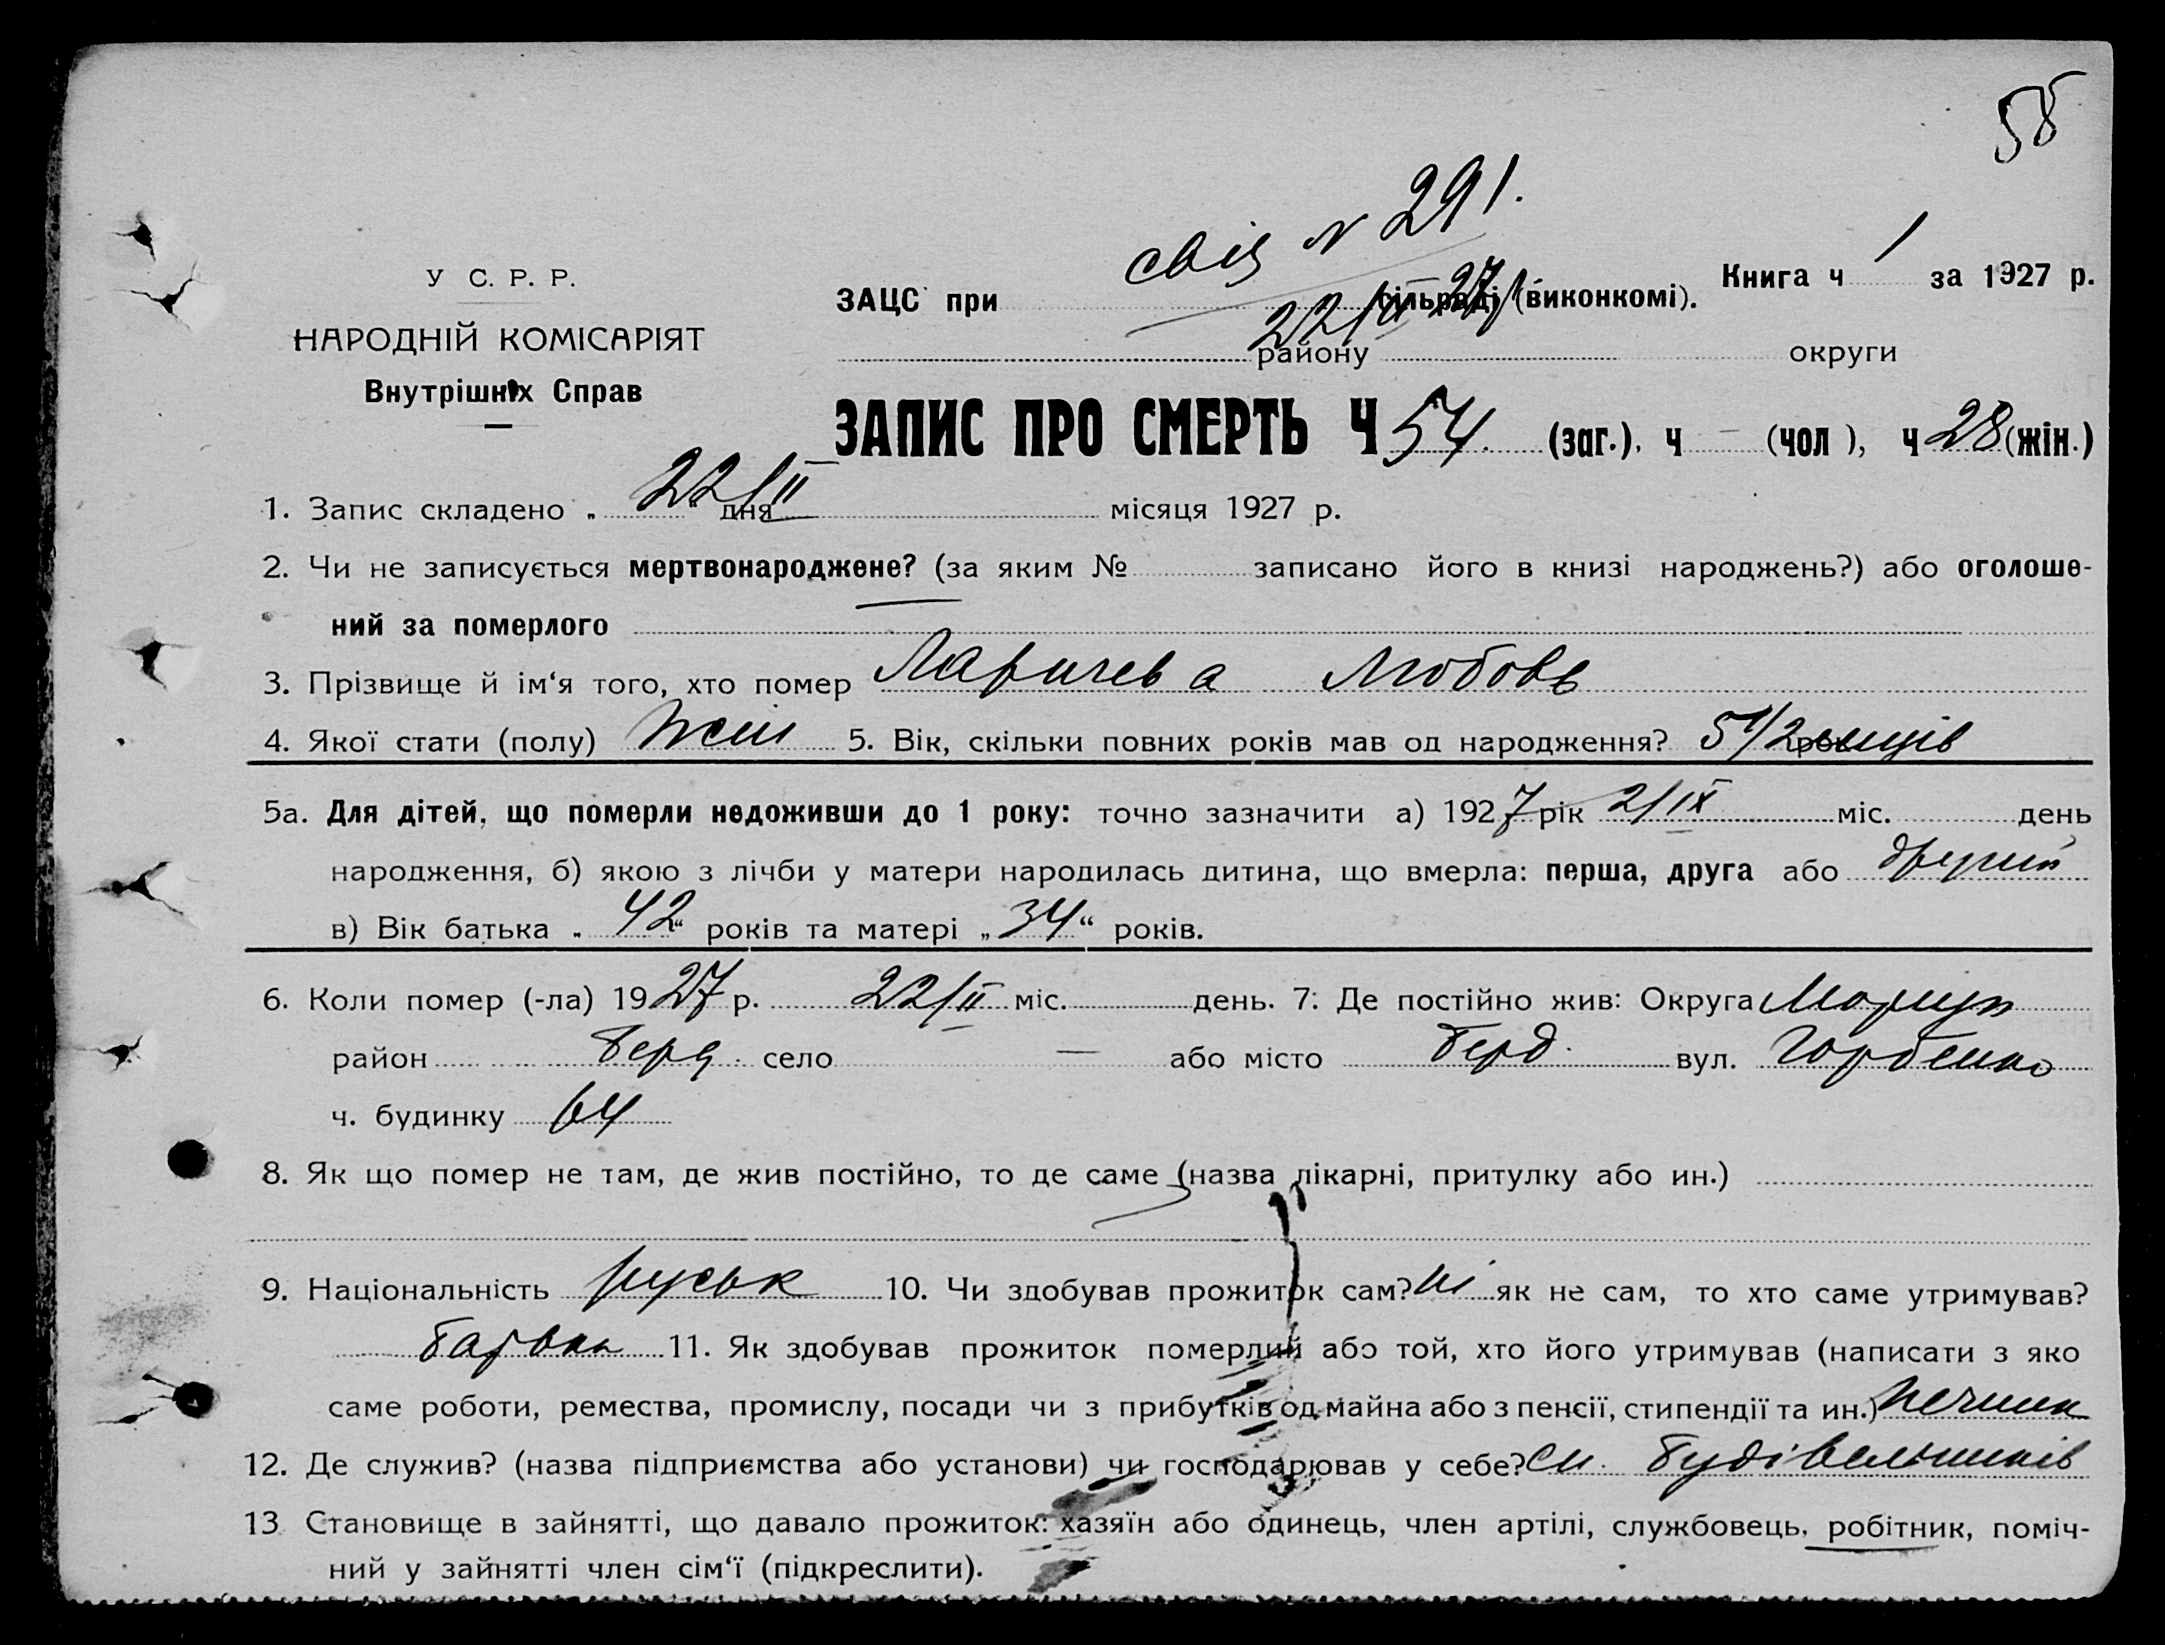 58
свід N 291.
22/II 27
У С. Р. Р.
НАРОДНІЙ КОМІСАРІЯТ
Внутрішніх Справ
ЗАЦС при сільраді (виконкомі).
Книга ч 1 за 1927 р.
району округи
ЗАПИС ПРО СМЕРТЬ Ч 54. (заг.), ч — (чол ), ч 28 (жін.)
1. Запис складено „ 22/II “ дня місяця 1927 р.
2. Чи не записується мертвонароджене? (за яким № записано його в книзі народжень?) або оголоше-
ний за померлого —
3. Прізвище й ім‘я того, хто помер Ларичева Любовь
4. Якої стати (полу) Жін 5. Вік, скільки повних років мав од народження? 5 1/2 місців
5а. Для дітей, що померли недоживши до 1 року: точно зазначити а) 1927 рік 2/IX міс. день
народження, б) якою з лічби у матери народилась дитина, що вмерла: перша, друга або другий
в) Вік батька „ 42 “ років та матері „ 34 “ років.
6. Коли помер (-ла) 1927 р. 22/II міс. день. 7. Де постійно жив: Округа Маріуп
район Берд. село — або місто Берд. вул. Горбенко
ч. будинку 64
8. Як що помер не там, де жив постійно, то де саме (назва лікарні, притулку або ин.)
9. Національність руськ 10. Чи здобував прожиток сам? Ні як не сам, то хто саме утримував?
батько 11. Як здобував прожиток померлий або той, хто його утримував (написати з яко
саме роботи, ремества, промислу, посади чи з прибутків од майна або з пенсії, стипендії та ин.) печник
12. Де служив? (назва підприємства або установи) чи господарював у себе? сп. будівельників
13 Становище в зайнятті, що давало прожиток: хазяїн або одинець, член артілі, службовець, робітник, поміч-
ний у зайнятті член сім‘ї (підкреслити).